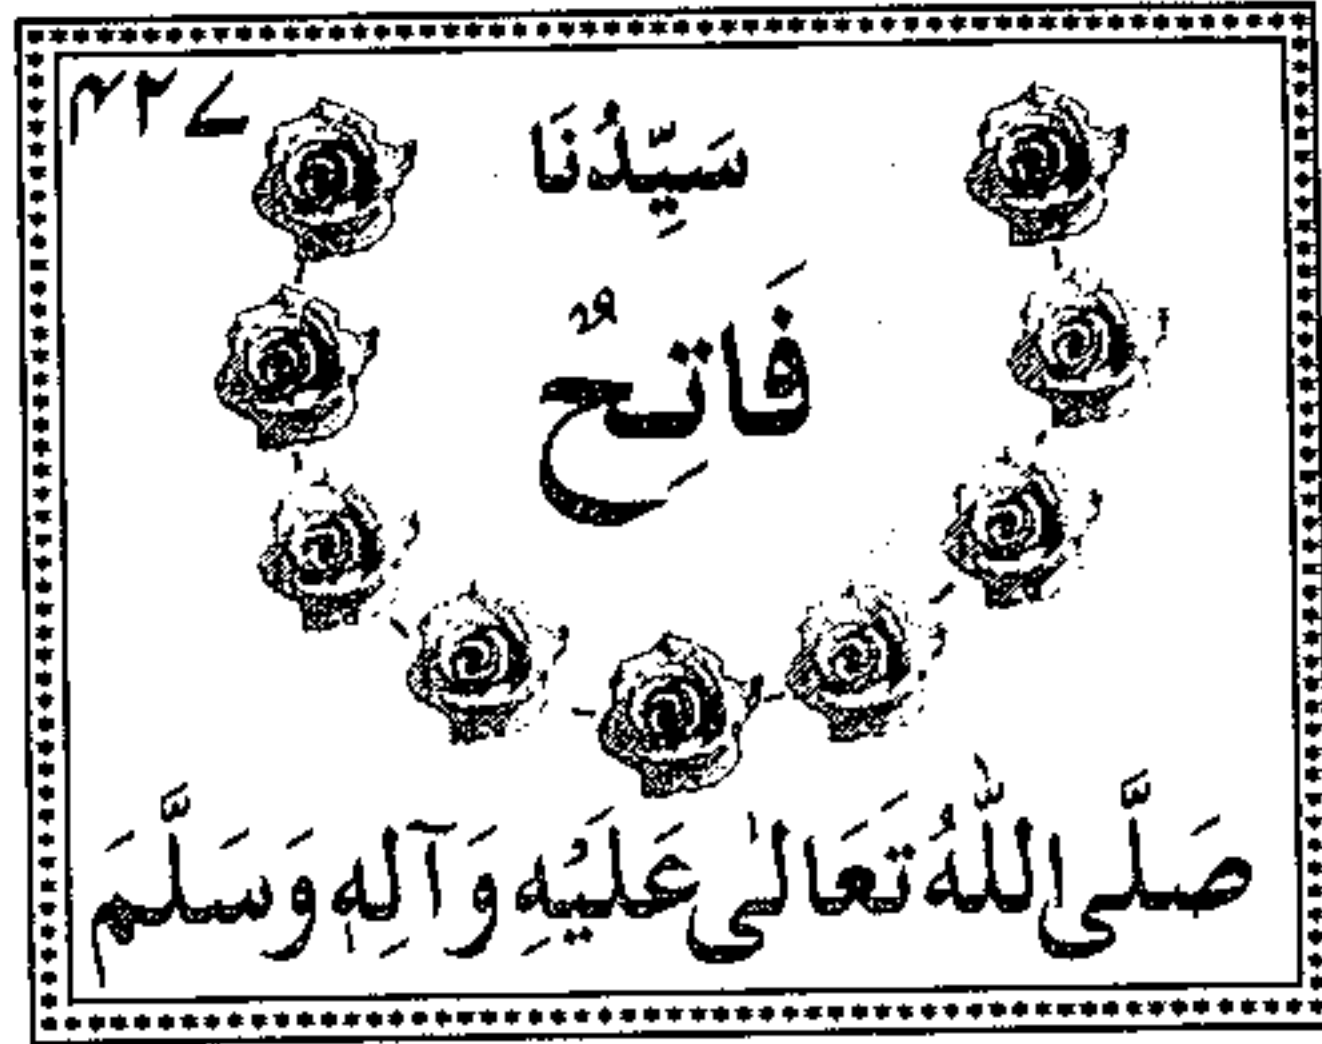 ۴۲۷
سَيِّدُنَا
فَاتِحٌ
صَلَّى اللّٰهُ تَعَالٰى عَلَيْهِ وَآلِهٖ وَسَلَّمَ